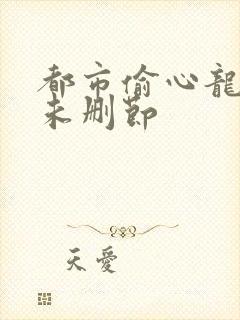 都市偷心龍
未删節
天愛